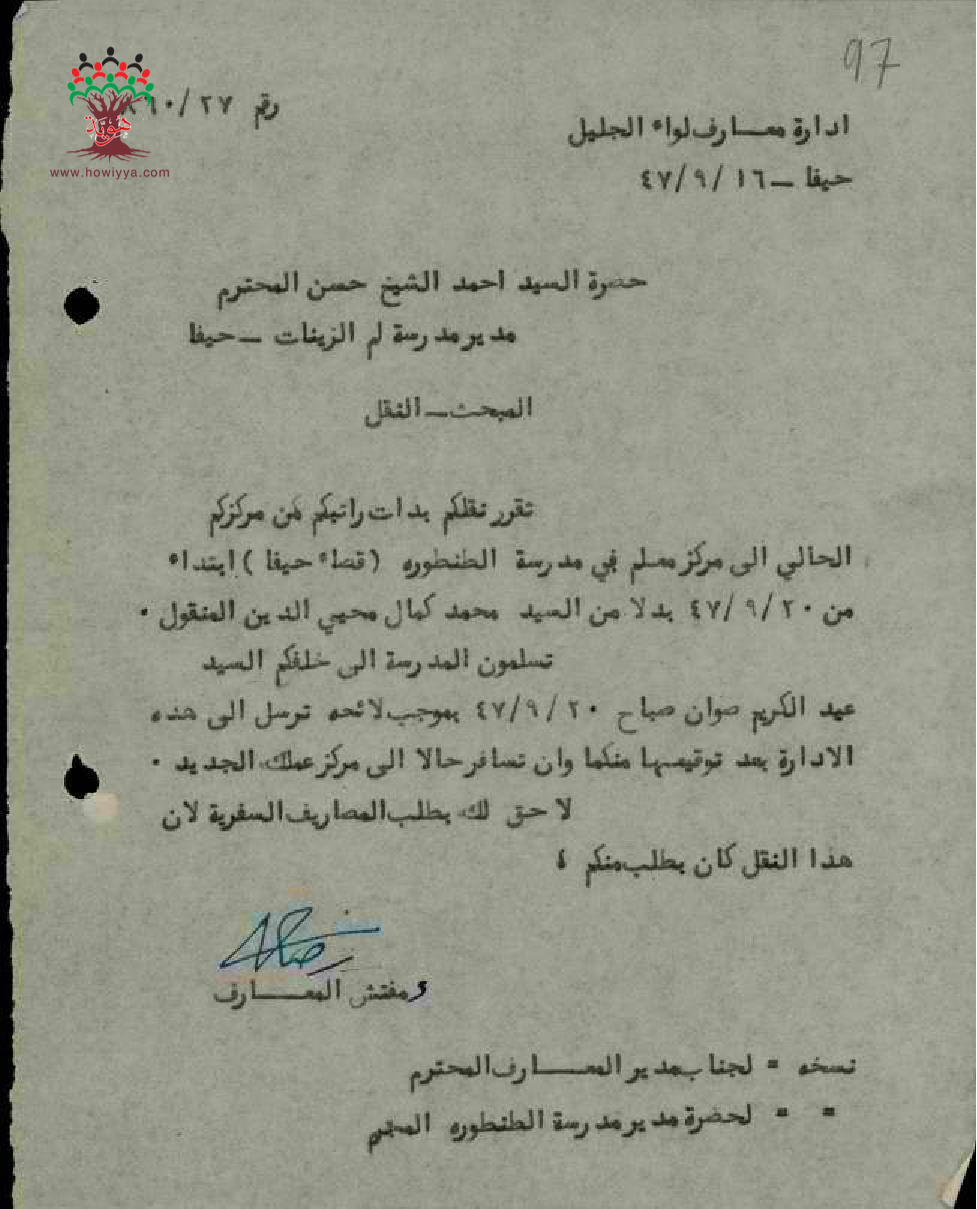 97
رقم ٢٧/
هوية
www.howiyya.com
ادارة معارف لواء الجليل
حيفا – ١٦/ ٩/ ٤٧
حضرة السيد احمد الشيخ حسن المحترم
مدير مدرسة ام الزينات – حيفا
المبحث – النقل
تقرر نقلكم بذات راتبكم من مركزكم
الحالي الى مركز معلم في مدرسة الطنطوره (قضاء حيفا) ابتداء
من ٢٠/ ٩/ ٤٧ بدلا من السيد محمد كمال محيي الدين المنقول ٠
تسلمون المدرسة الى خلفكم السيد
عبد الكريم صوان صباح ٢٠/ ٩/ ٤٧ بموجب لائحه ترسل الى هذه
الادارة بعد توقيعها منكما وان تسافر حالا الى مركز عملك الجديد ٠
لا حق لك بطلب المصاريف السفرية لان
هذا النقل كان بطلب منكم ٤
و مفتش المعارف
نسخه = لجناب مدير المعارف المحترم
= = لحضرة مدير مدرسة الطنطوره